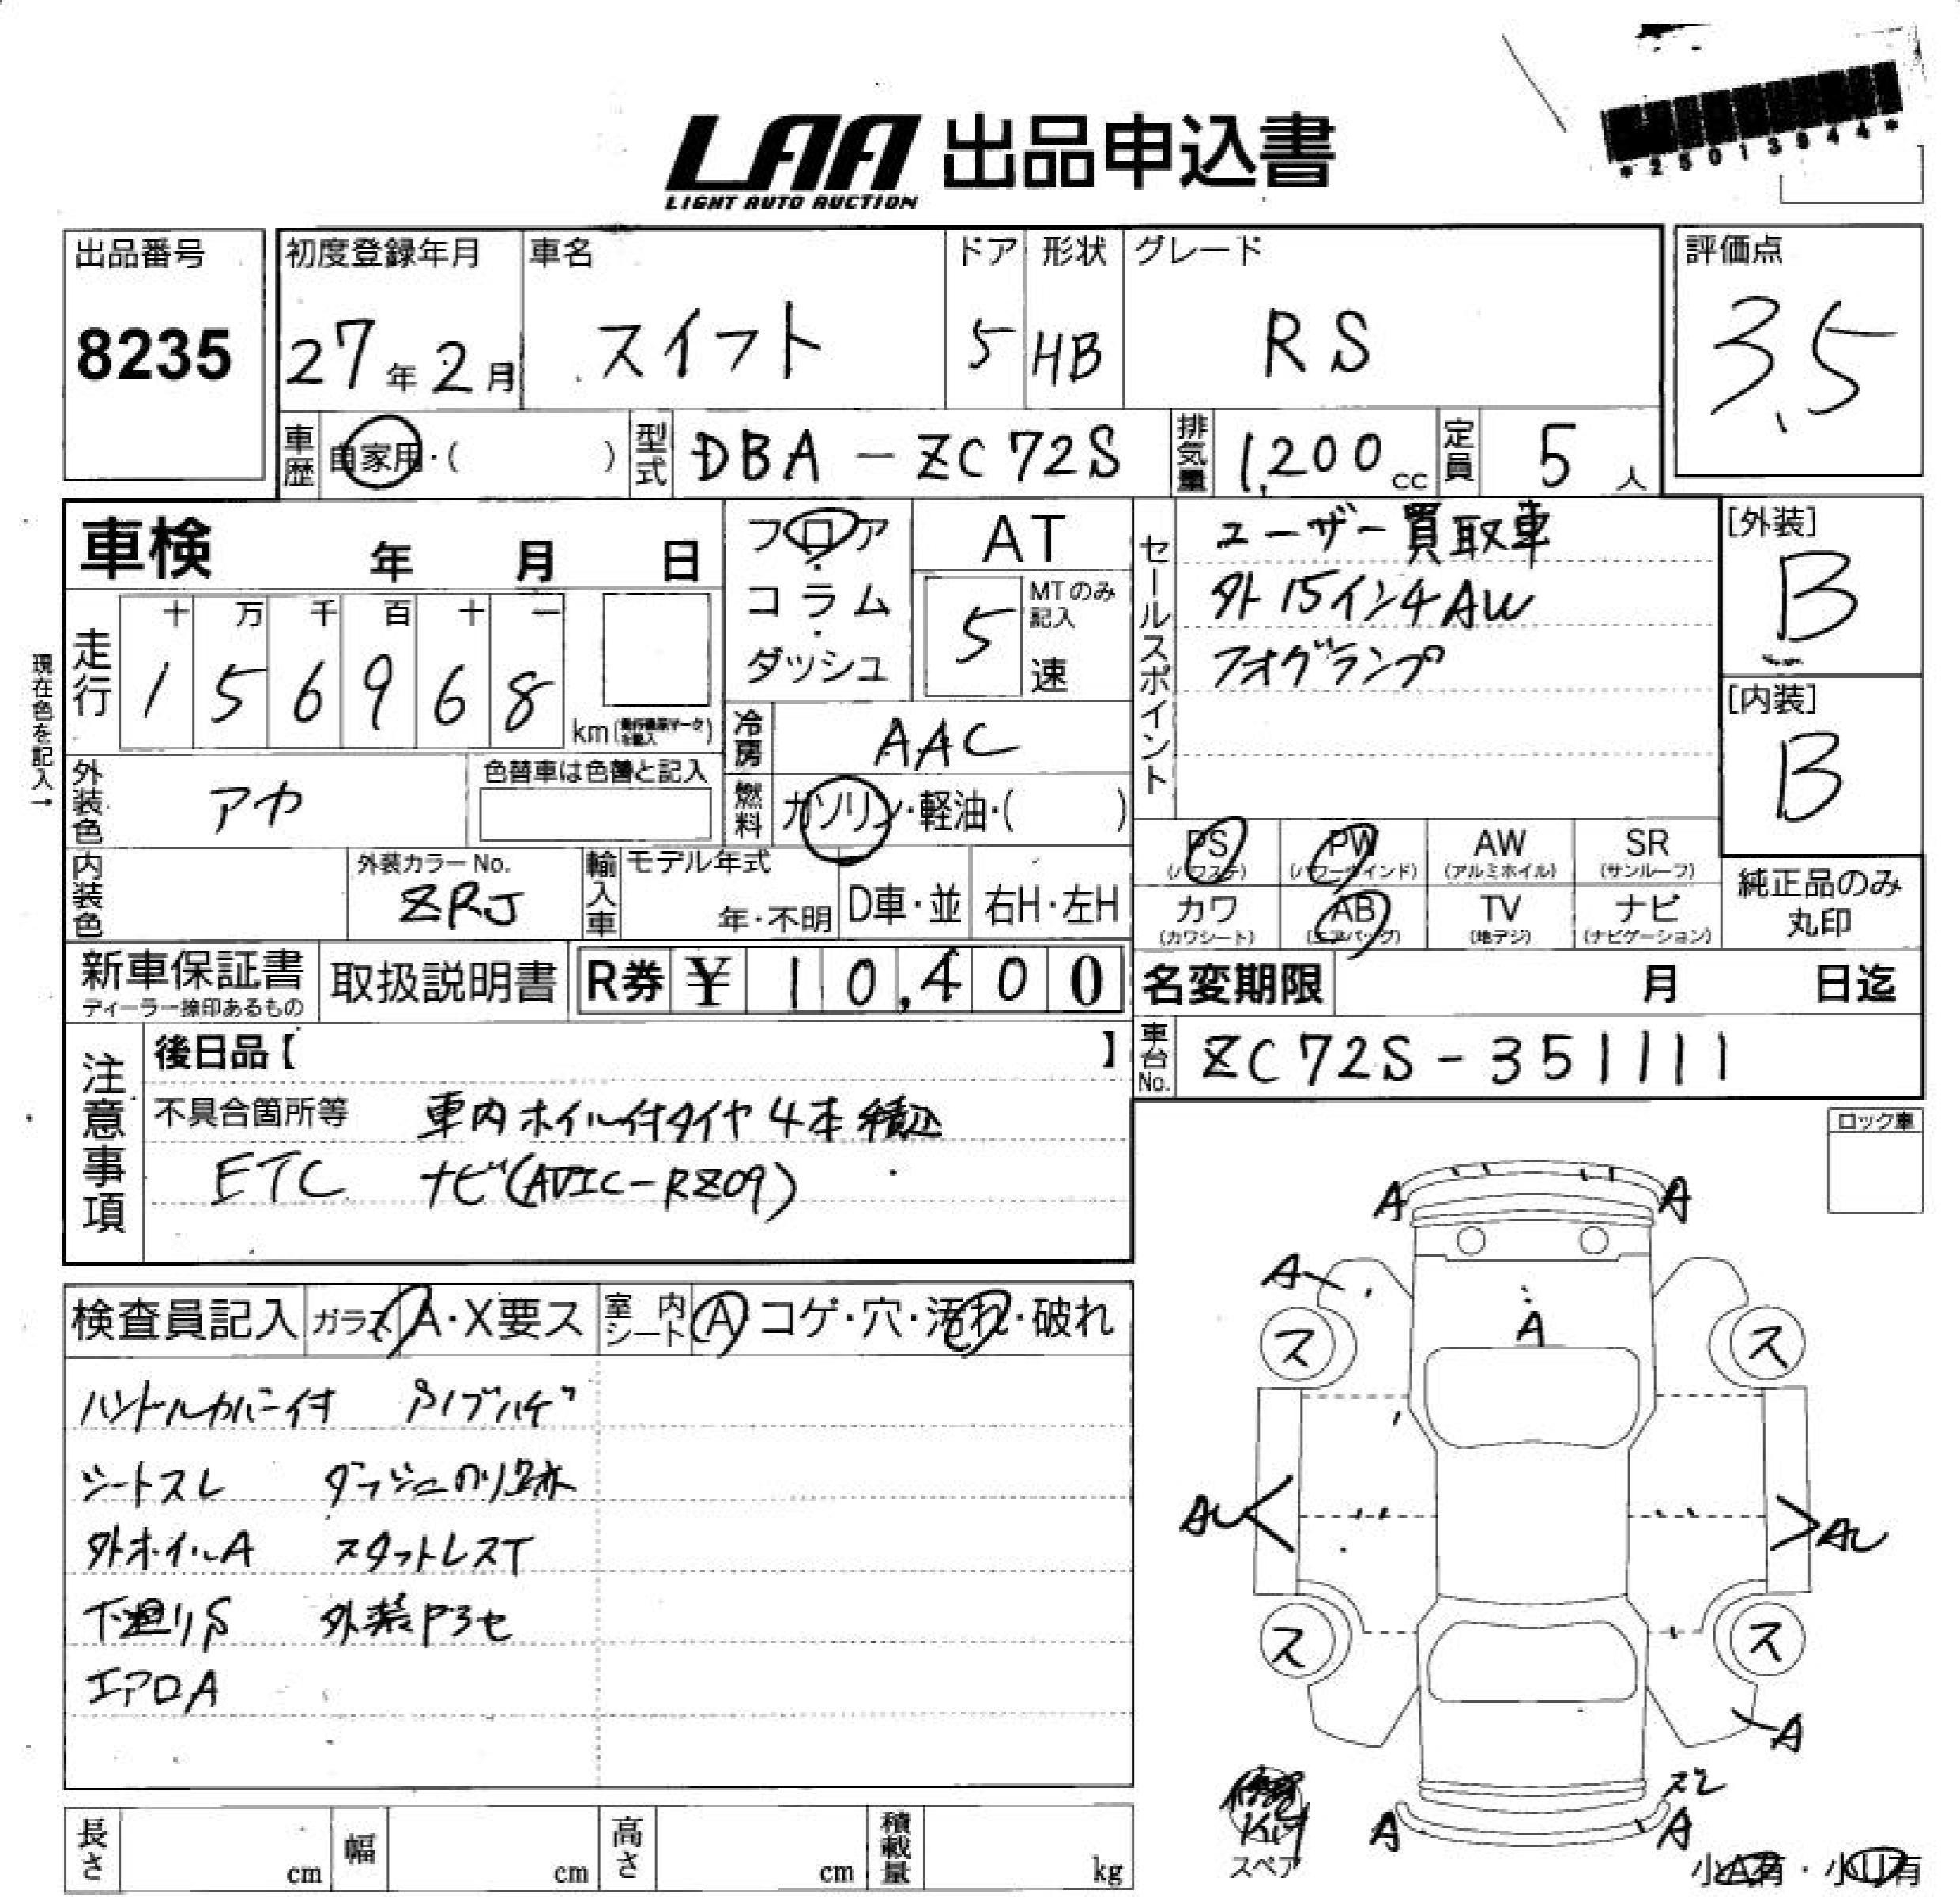 *25013944*
LAA 出品申込書
LIGHT AUTO AUCTION
出品番号 初度登録年月 車名 ドア 形状 グレード 評価点
8235 27年2月 スイフト 5 HB RS 3.5
車歴 自家用・( ) 型式 DBA-ZC72S 排気量 1,200cc 定員 5人
車検 年 月 日
フロア・コラム・ダッシュ
AT
5 MTのみ記入 速
セールスポイント
ユーザー買取車
外15インチAW
フォグランプ
[外装]
B
[内装]
B
現在色を記入→
走行 十 万 千 百 十 一
1 5 6 9 6 8 km
冷房 AAC
外装色 アカ 色替車は色替と記入
燃料 ガソリン・軽油・( )
PS (パワステ) PW (パワーウインド) AW (アルミホイル) SR (サンルーフ)
カワ (カワシート) AB (エアバッグ) TV (地デジ) ナビ (ナビゲーション)
純正品のみ丸印
内装色 外装カラーNo. ZRJ 輸入車 モデル年式 年・不明 D車・並 右H・左H
新車保証書 ディーラー捺印あるもの 取扱説明書 R券 ¥ 10,400 名変期限 月 日迄
車台No. ZC72S-351111
注意事項
後日品【 】
不具合箇所等 車内ホイル付タイヤ4本積込
ETC ナビ(AVIC-RZ09)
ロック車
A A
A
A
ス ス
AU AU
ス ス
A
ズレ
A A
スペア
小A有・小U有
検査員記入 ガラス A・X要ス 室内シート A コゲ・穴・汚れ・破れ
ハンドルカバー付 Sノブハゲ
シートスレ ダッシュのり跡
外ホイルA スタットレスT
下廻りS 外装P3セ
エアロA
長さ cm 幅 cm 高さ cm 積載量 kg